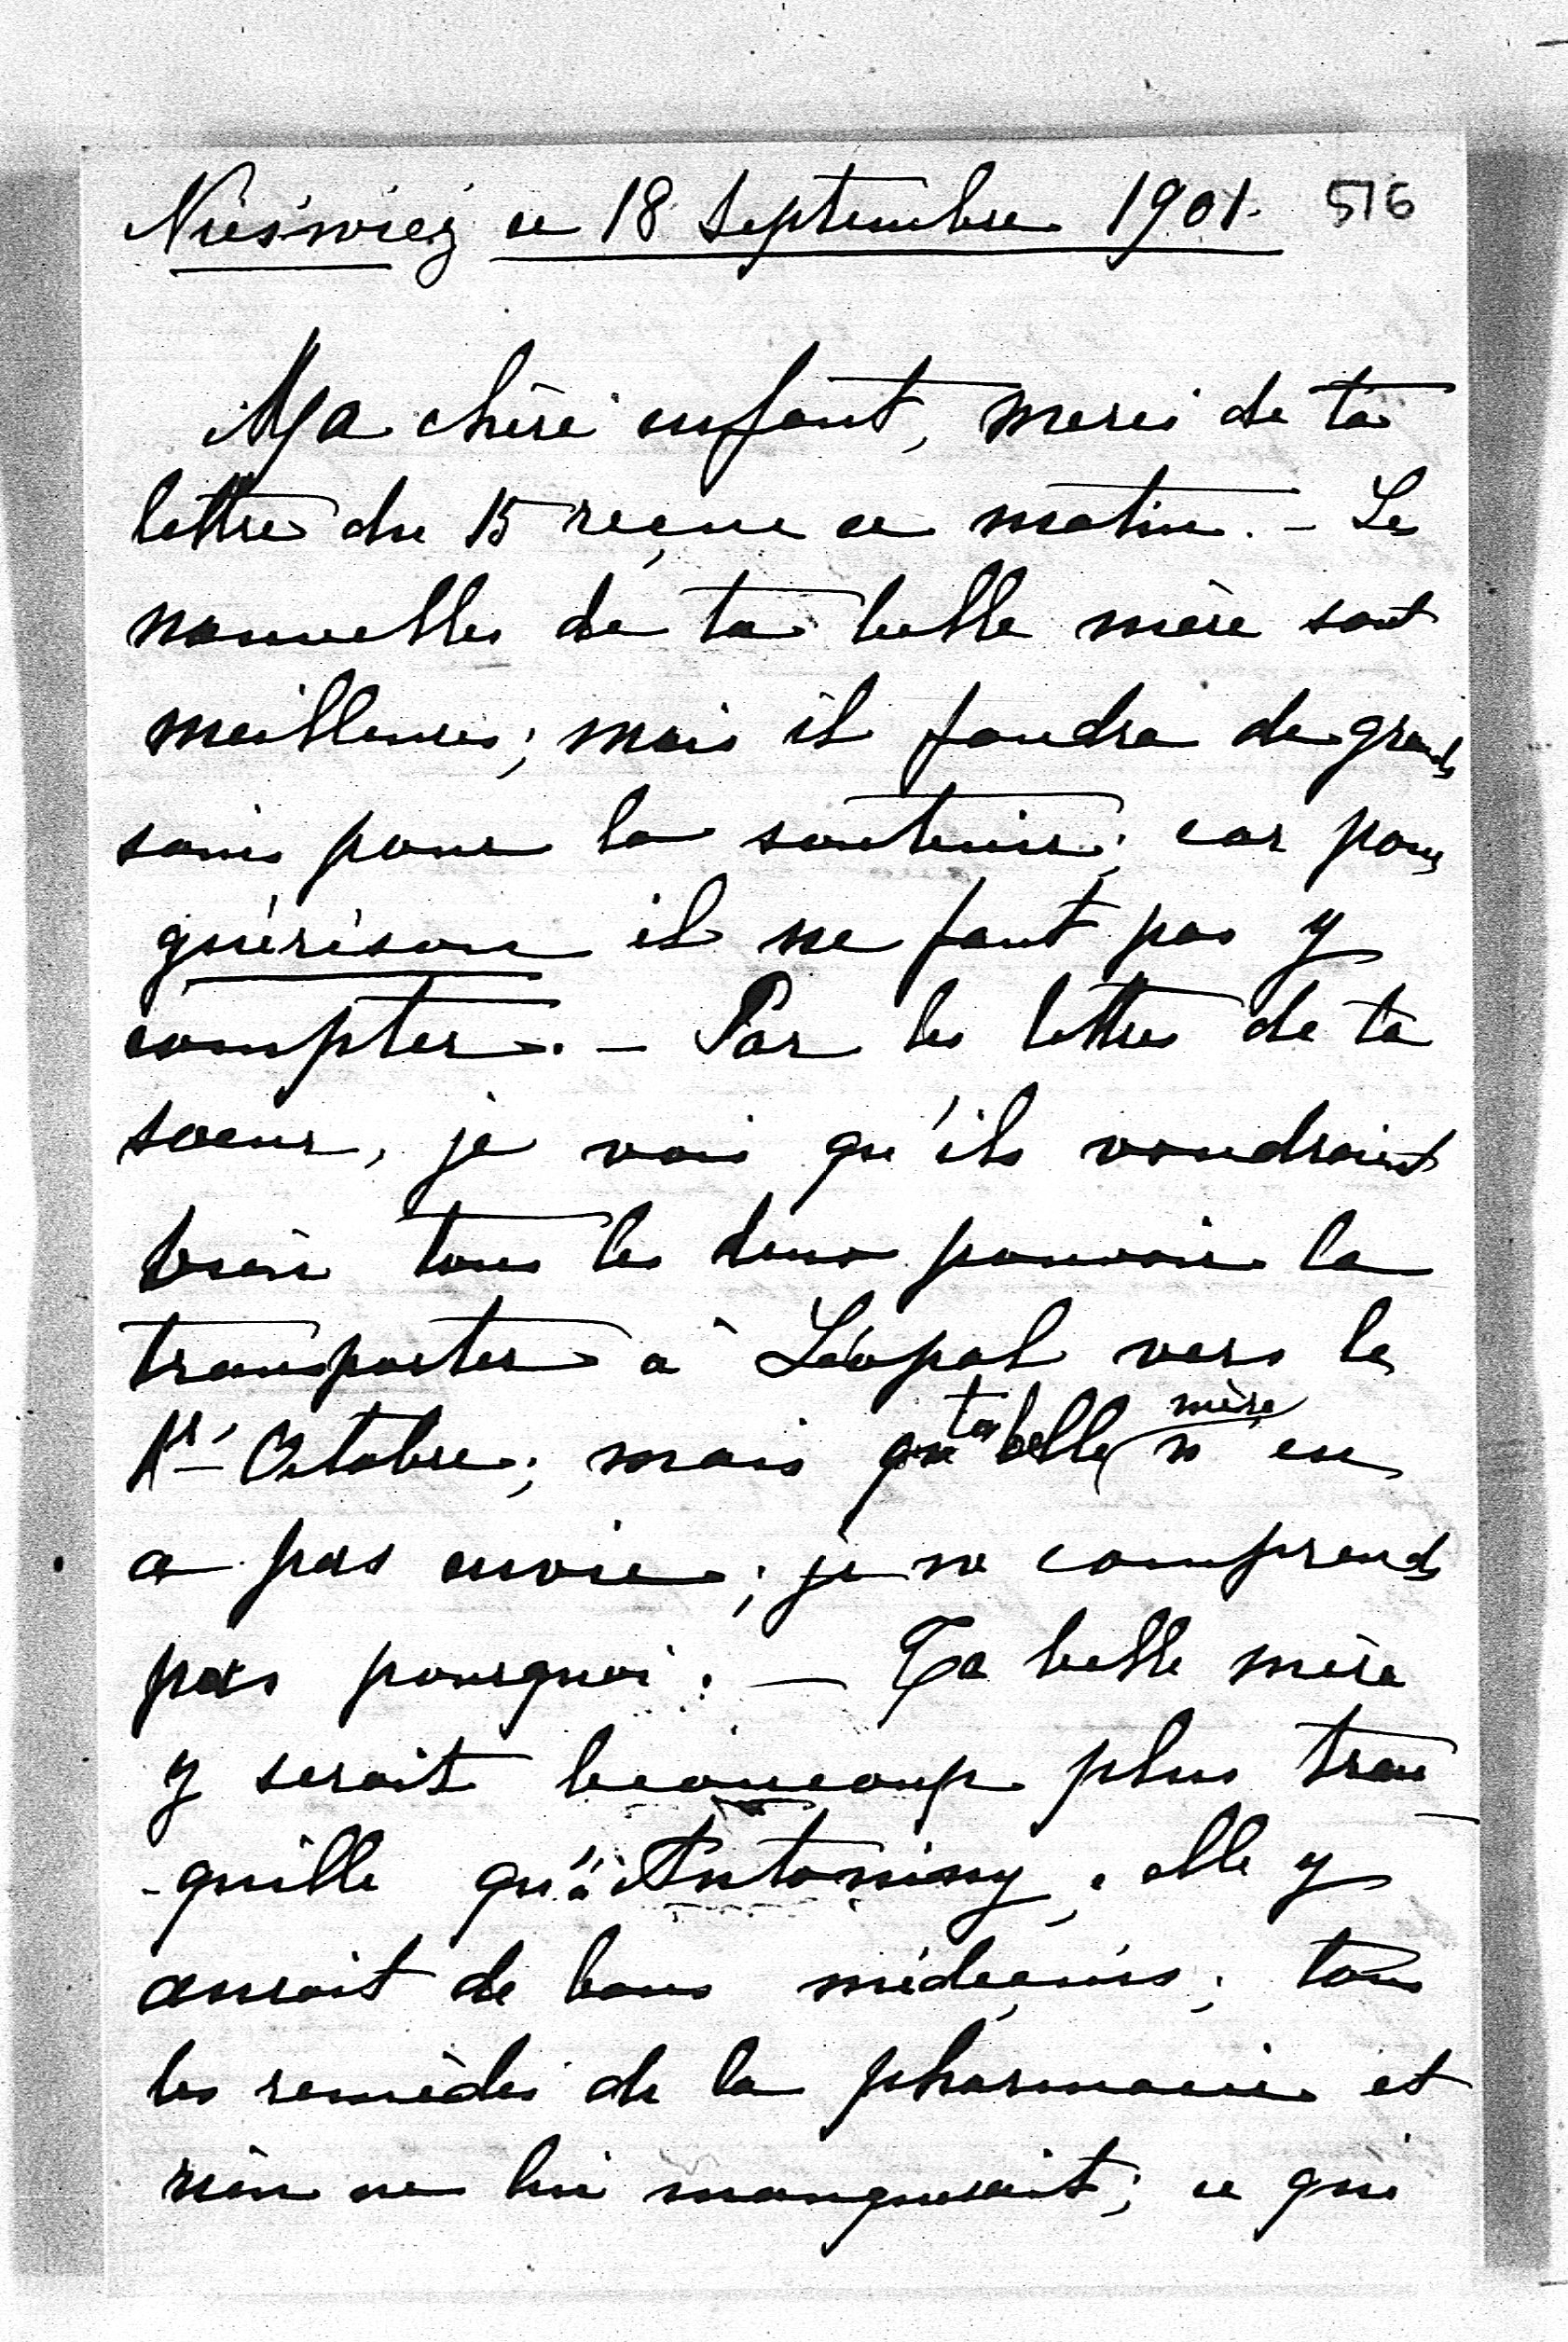 Nieświez ce 18 Septembre 1901. 516
Ma chère enfant, merci de ta
lettre du 15 reçue ce matin. – Les
nouvelles de ta belle mère sont
meilleures; mais il faudra de grands
soins pour la soutenir; car pour
guérison il ne faut pas y
compter. – Par les lettres de ta
soeur, je vois qu'ils voudraient
bien tous les deux pouvoir la
transporter à Léopol vers le
1r Octobre; mais que ta belle mère n'en
a pas envie; je ne comprends
pas pourquoi. – Ta belle mère
y serait beaucoup plus tran
-quille qu'à Antoniny, elle y
aurait de bons médecins; tous
les remèdes de la pharmacie et
rien ne lui manquerait; ce qui